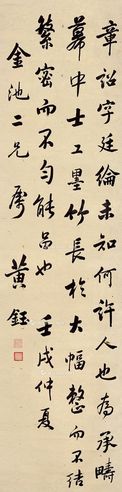 章諗字廷綸未知何許人也為承疇
幕中士工墨竹長於大幅整而不結
繁密而不勻能品也 壬戌仲夏
金池二兄屬 黄鈺